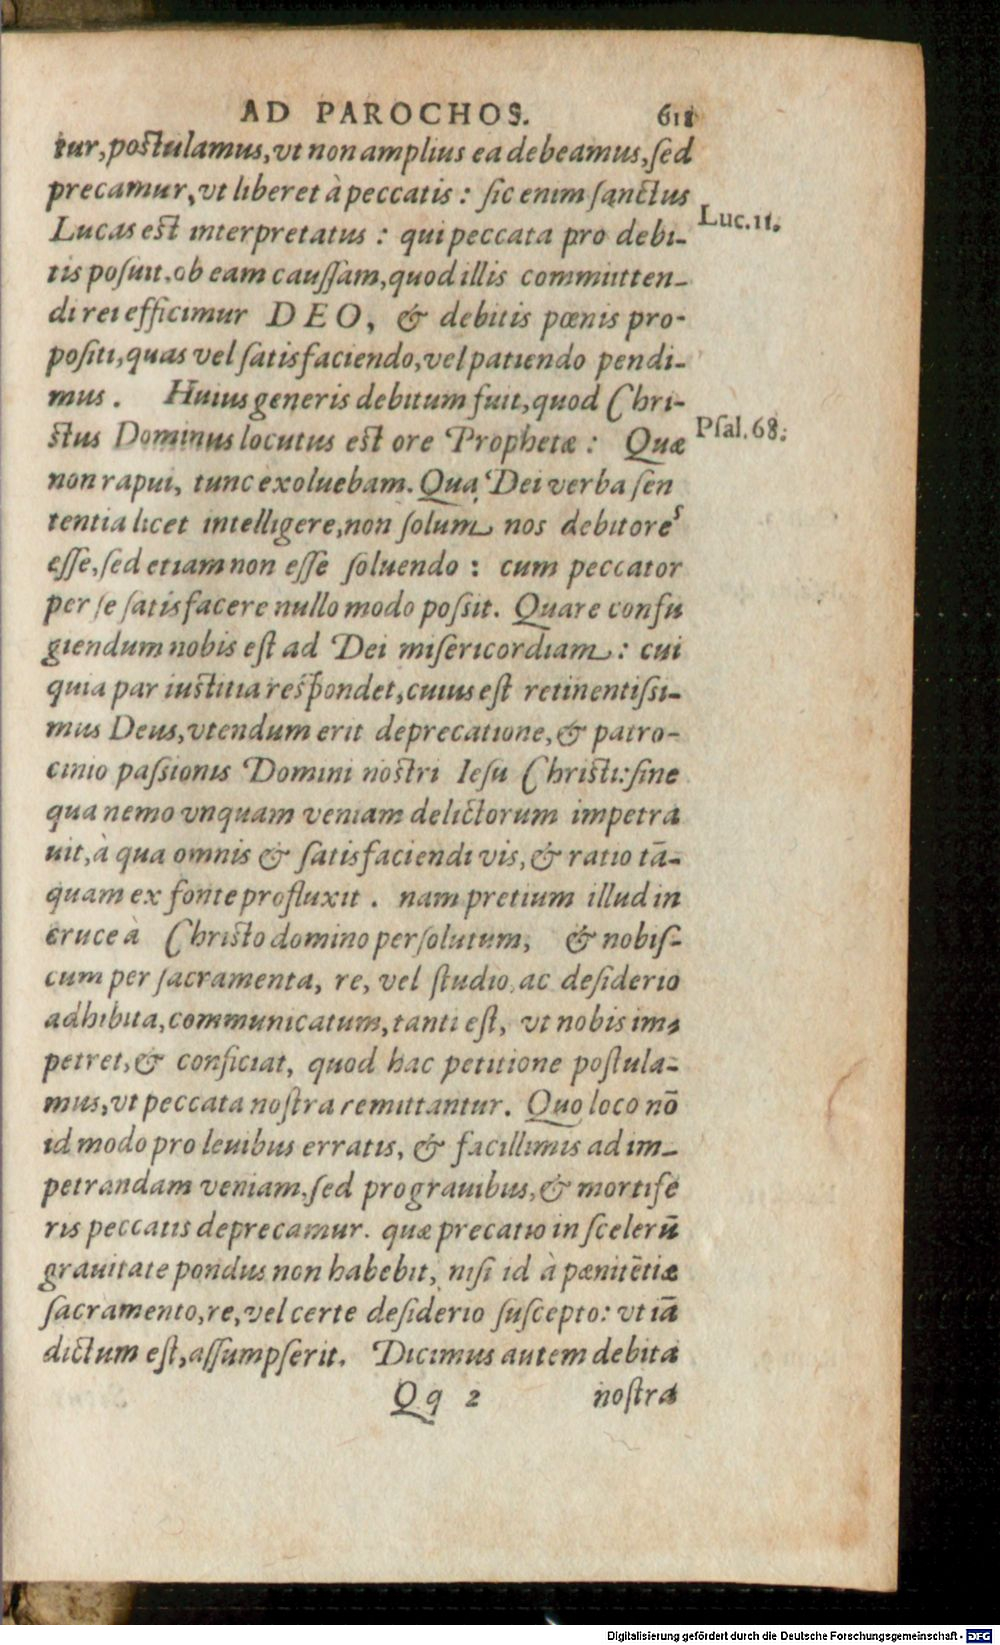 AD PAROCHOS. 611
tur, postulamus, vt non amplius ea debeamus, sed
precamur, vt liberet à peccatis: sic enim sanctus
Luc. 11.
Lucas est interpretatus: qui peccata pro debi-
tis posuit. ob eam caussam, quod illis committen-
di rei efficimur DEO, & debitis pœnis pro-
positi, quas vel satisfaciendo, vel patiendo pendi-
mus. Huius generis debitum fuit, quod Chri-
stus Dominus locutus est ore Prophetæ: Quæ
Psal. 68:
non rapui, tunc exoluebam. Qua Dei verba sen
tentia licet intelligere, non solum nos debitores
esse, sed etiam non esse soluendo: cum peccator
per se satisfacere nullo modo possit. Quare confu
giendum nobis est ad Dei misericordiam: cui
quia par iustitia respondet, cuius est retinentissi-
mus Deus, vtendum erit deprecatione, & patro-
cinio passionis Domini nostri Iesu Christi: sine
qua nemo vnquam veniam delictorum impetra
uit, à qua omnis & satisfaciendi vis, & ratio tā-
quam ex fonte profluxit. nam pretium illud in
cruce à Christo domino persolutum, & nobis-
cum per sacramenta, re, vel studio, ac desiderio
adhibita, communicatum, tanti est, vt nobis im-
petret, & conficiat, quod hac petitione postula-
mus, vt peccata nostra remittantur. Quo loco nō
id modo pro leuibus erratis, & facillimis ad im-
petrandam veniam, sed pro grauibus, & mortife
ris peccatis deprecamur. quæ precatio in scelerū
grauitate pondus non habebit, nisi id à pænitētiæ
sacramento, re, vel certe desiderio suscepto: vt iā
dictum est, assumpserit. Dicimus autem debita
Qq 2 nostra
Digitalisierung gefördert durch die Deutsche Forschungsgemeinschaft - DFG